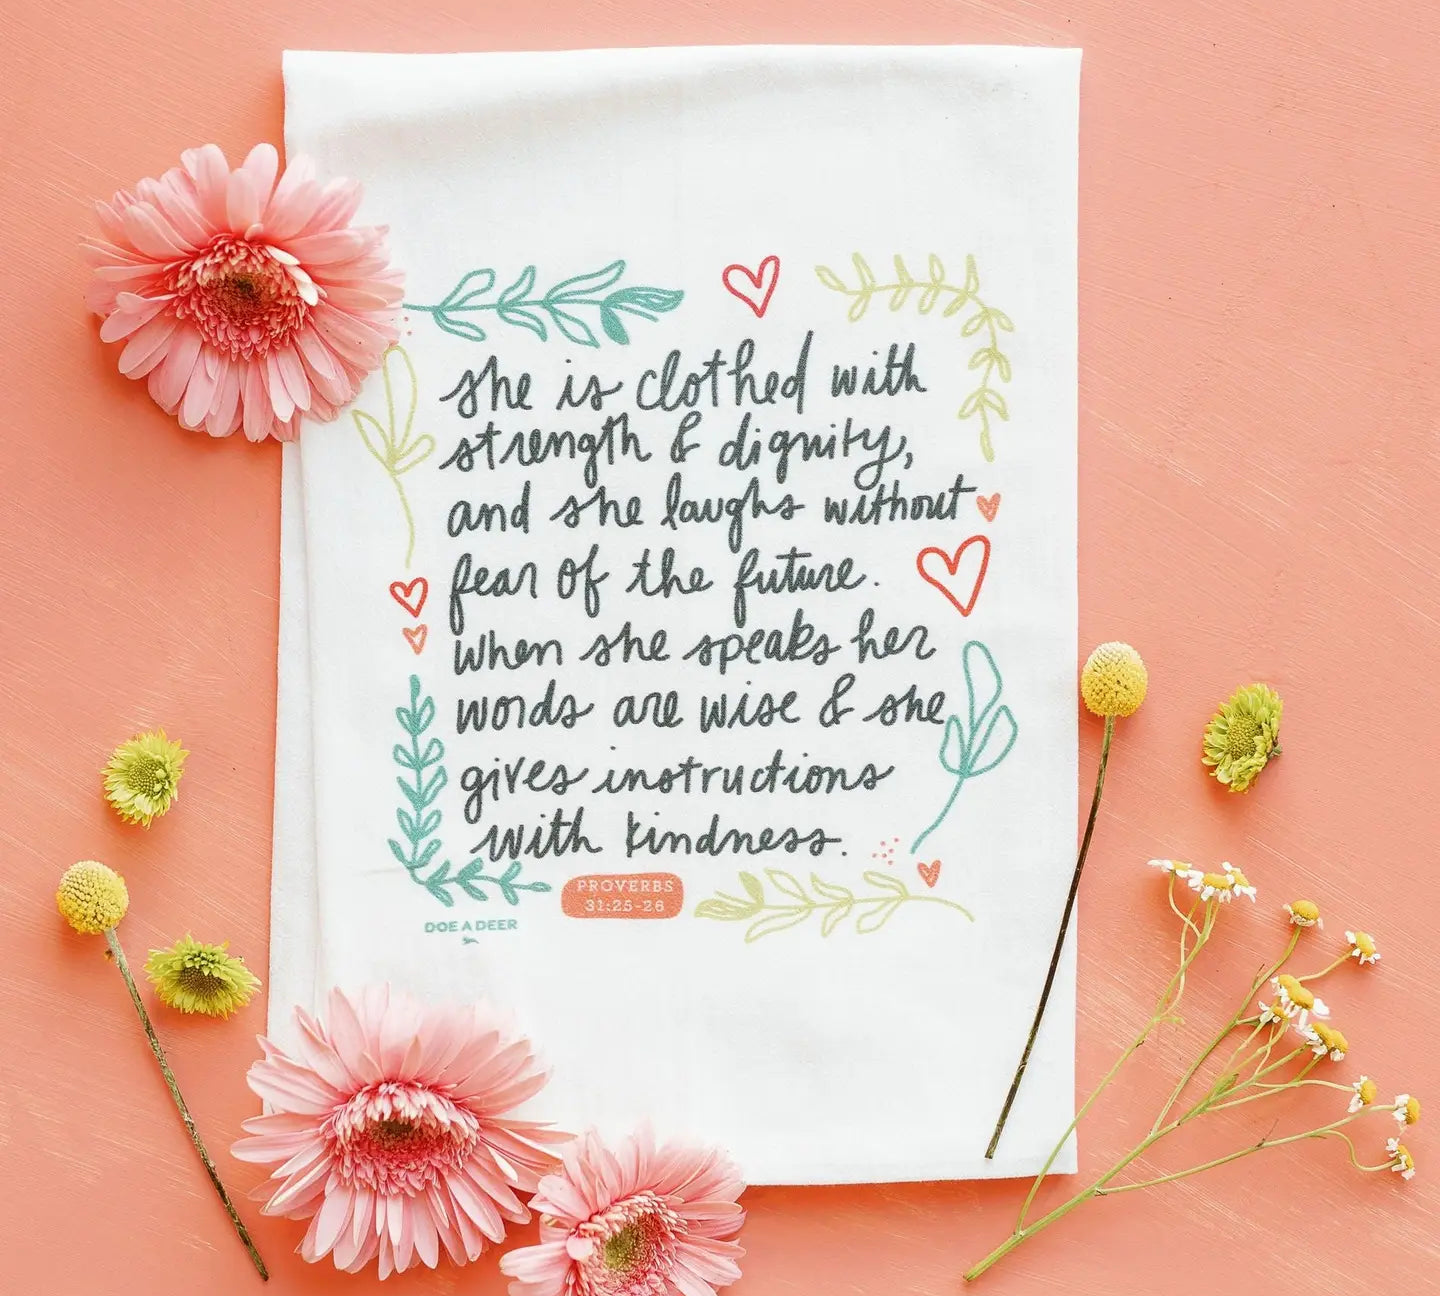 she is clothed with
strength & dignity,
and she laughs without
fear of the future.
when she speaks her
words are wise & she
gives instructions
with kindness.
PROVERBS
31:25-26
DOE A DEER